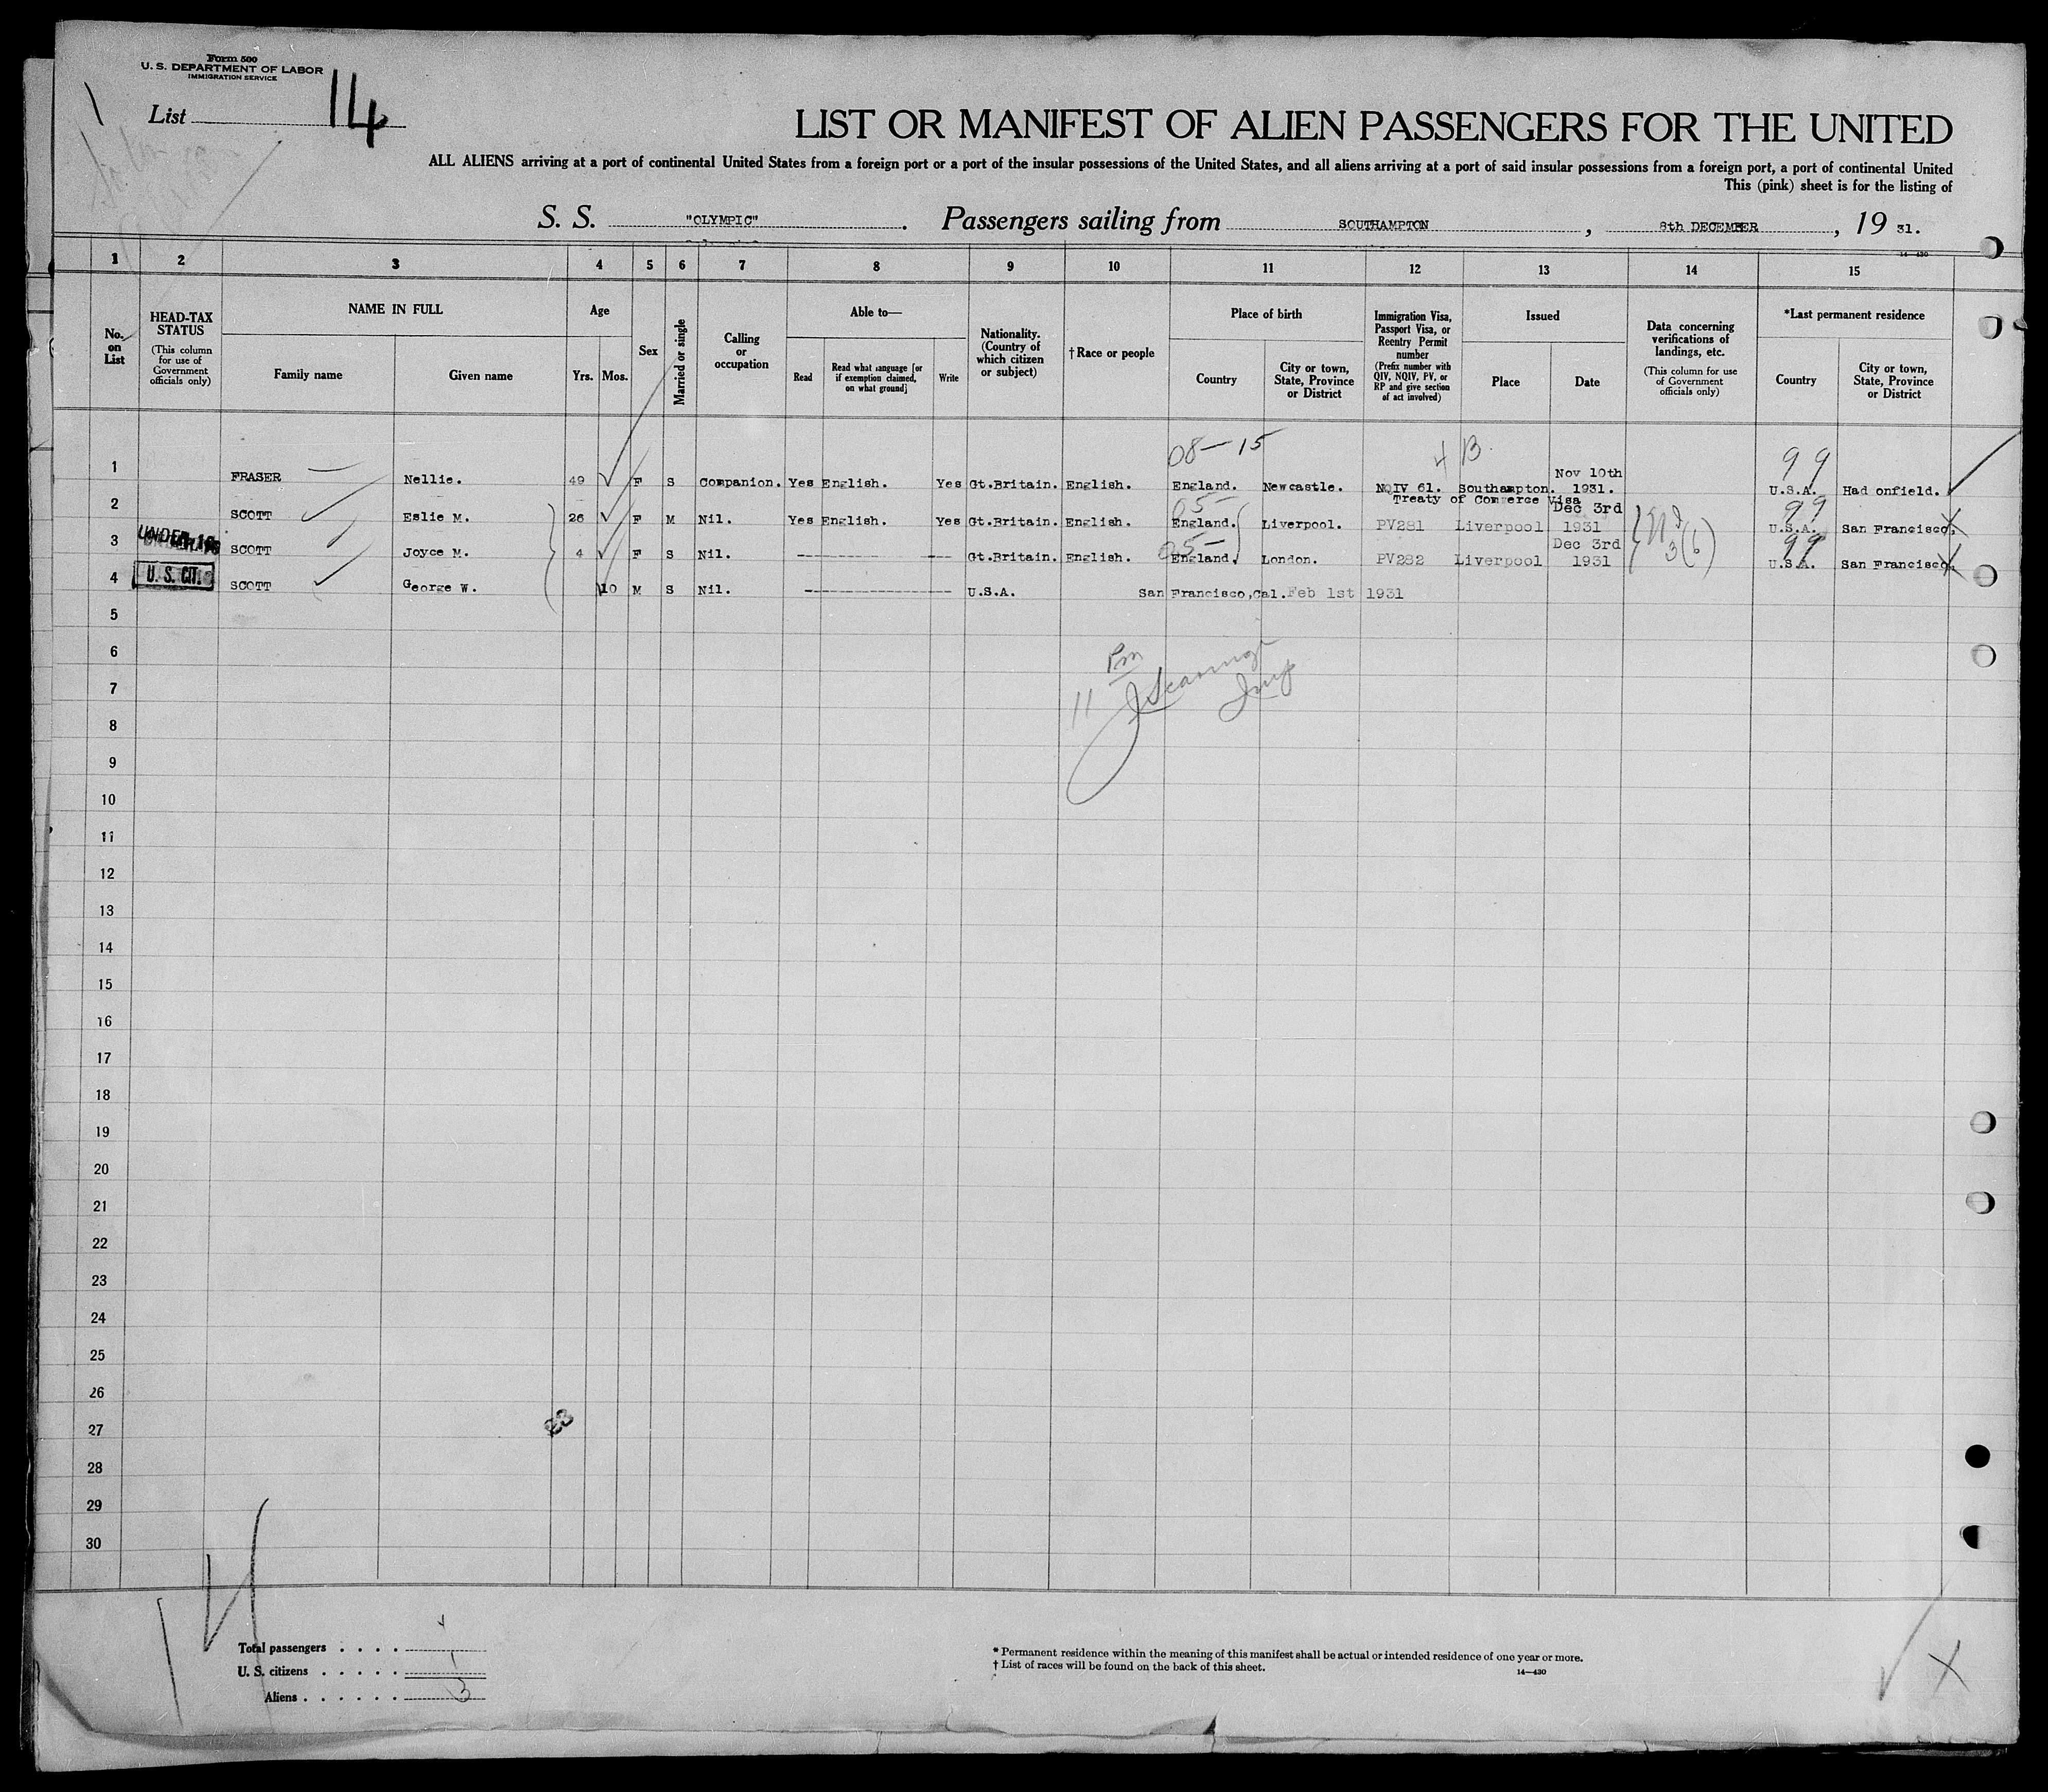 Form 500
U. S. DEPARTMENT OF LABOR
IMMIGRATION SERVICE
List 14
LIST OR MANIFEST OF ALIEN PASSENGERS FOR THE UNITED
ALL ALIENS arriving at a port of continental United States from a foreign port or a port of the insular possessions of the United States, and all aliens arriving at a port of said insular possessions from a foreign port, a port of continental United
This (pink) sheet is for the listing of
S. S. "OLYMPIC". Passengers sailing from SOUTHAMPTON, 8th DECEMBER, 19 31.
14—430
1 2 3 4 5 6 7 8 9 10 11 12 13 14 15
No. on List
HEAD-TAX STATUS
(This column for use of Government officials only)
NAME IN FULL
Family name
Given name
Age
Yrs.
Mos.
Sex
Married or single
Calling or occupation
Able to—
Read
Read what language [or if exemption claimed, on what ground]
Write
Nationality. (Country of which citizen or subject)
†Race or people
Place of birth
Country
City or town, State, Province or District
Immigration Visa, Passport Visa, or Reentry Permit number
(Prefix number with QIV, NQIV, PV, or RP and give section of act involved)
Issued
Place
Date
Data concerning verifications of landings, etc.
(This column for use of Government officials only)
*Last permanent residence
Country
City or town, State, Province or District
08—15
4 B.
99
1 FRASER Nellie. 49 F S Companion. Yes English. Yes Gt.Britain. English. England. Newcastle. NQIV 61. Southampton. Nov 10th 1931. U.S.A. Had onfield.
Treaty of Commerce Visa
05—
99
2 SCOTT Eslie M. 26 F M Nil. Yes English. Yes Gt.Britain. English. England. Liverpool. PV281 Liverpool Dec 3rd 1931 U.S.A. San Francisco,
3(6)
UNDER 16
05—
99
3 SCOTT Joyce M. 4 F S Nil. Gt.Britain. English. England. London. PV282 Liverpool Dec 3rd 1931 U.S.A. San Francisco,
U. S. CIT.
4 SCOTT George W. 10 M S Nil. U.S.A. San Francisco,Cal. Feb 1st 1931
5
6
Pm
7
11
8
9
10
11
12
13
14
15
16
17
18
19
20
21
22
23
24
25
26
27
28
29
30
14
Total passengers . . . . 4
U. S. citizens . . . . . 1
Aliens . . . . . . 3
* Permanent residence within the meaning of this manifest shall be actual or intended residence of one year or more.
† List of races will be found on the back of this sheet.
14—430